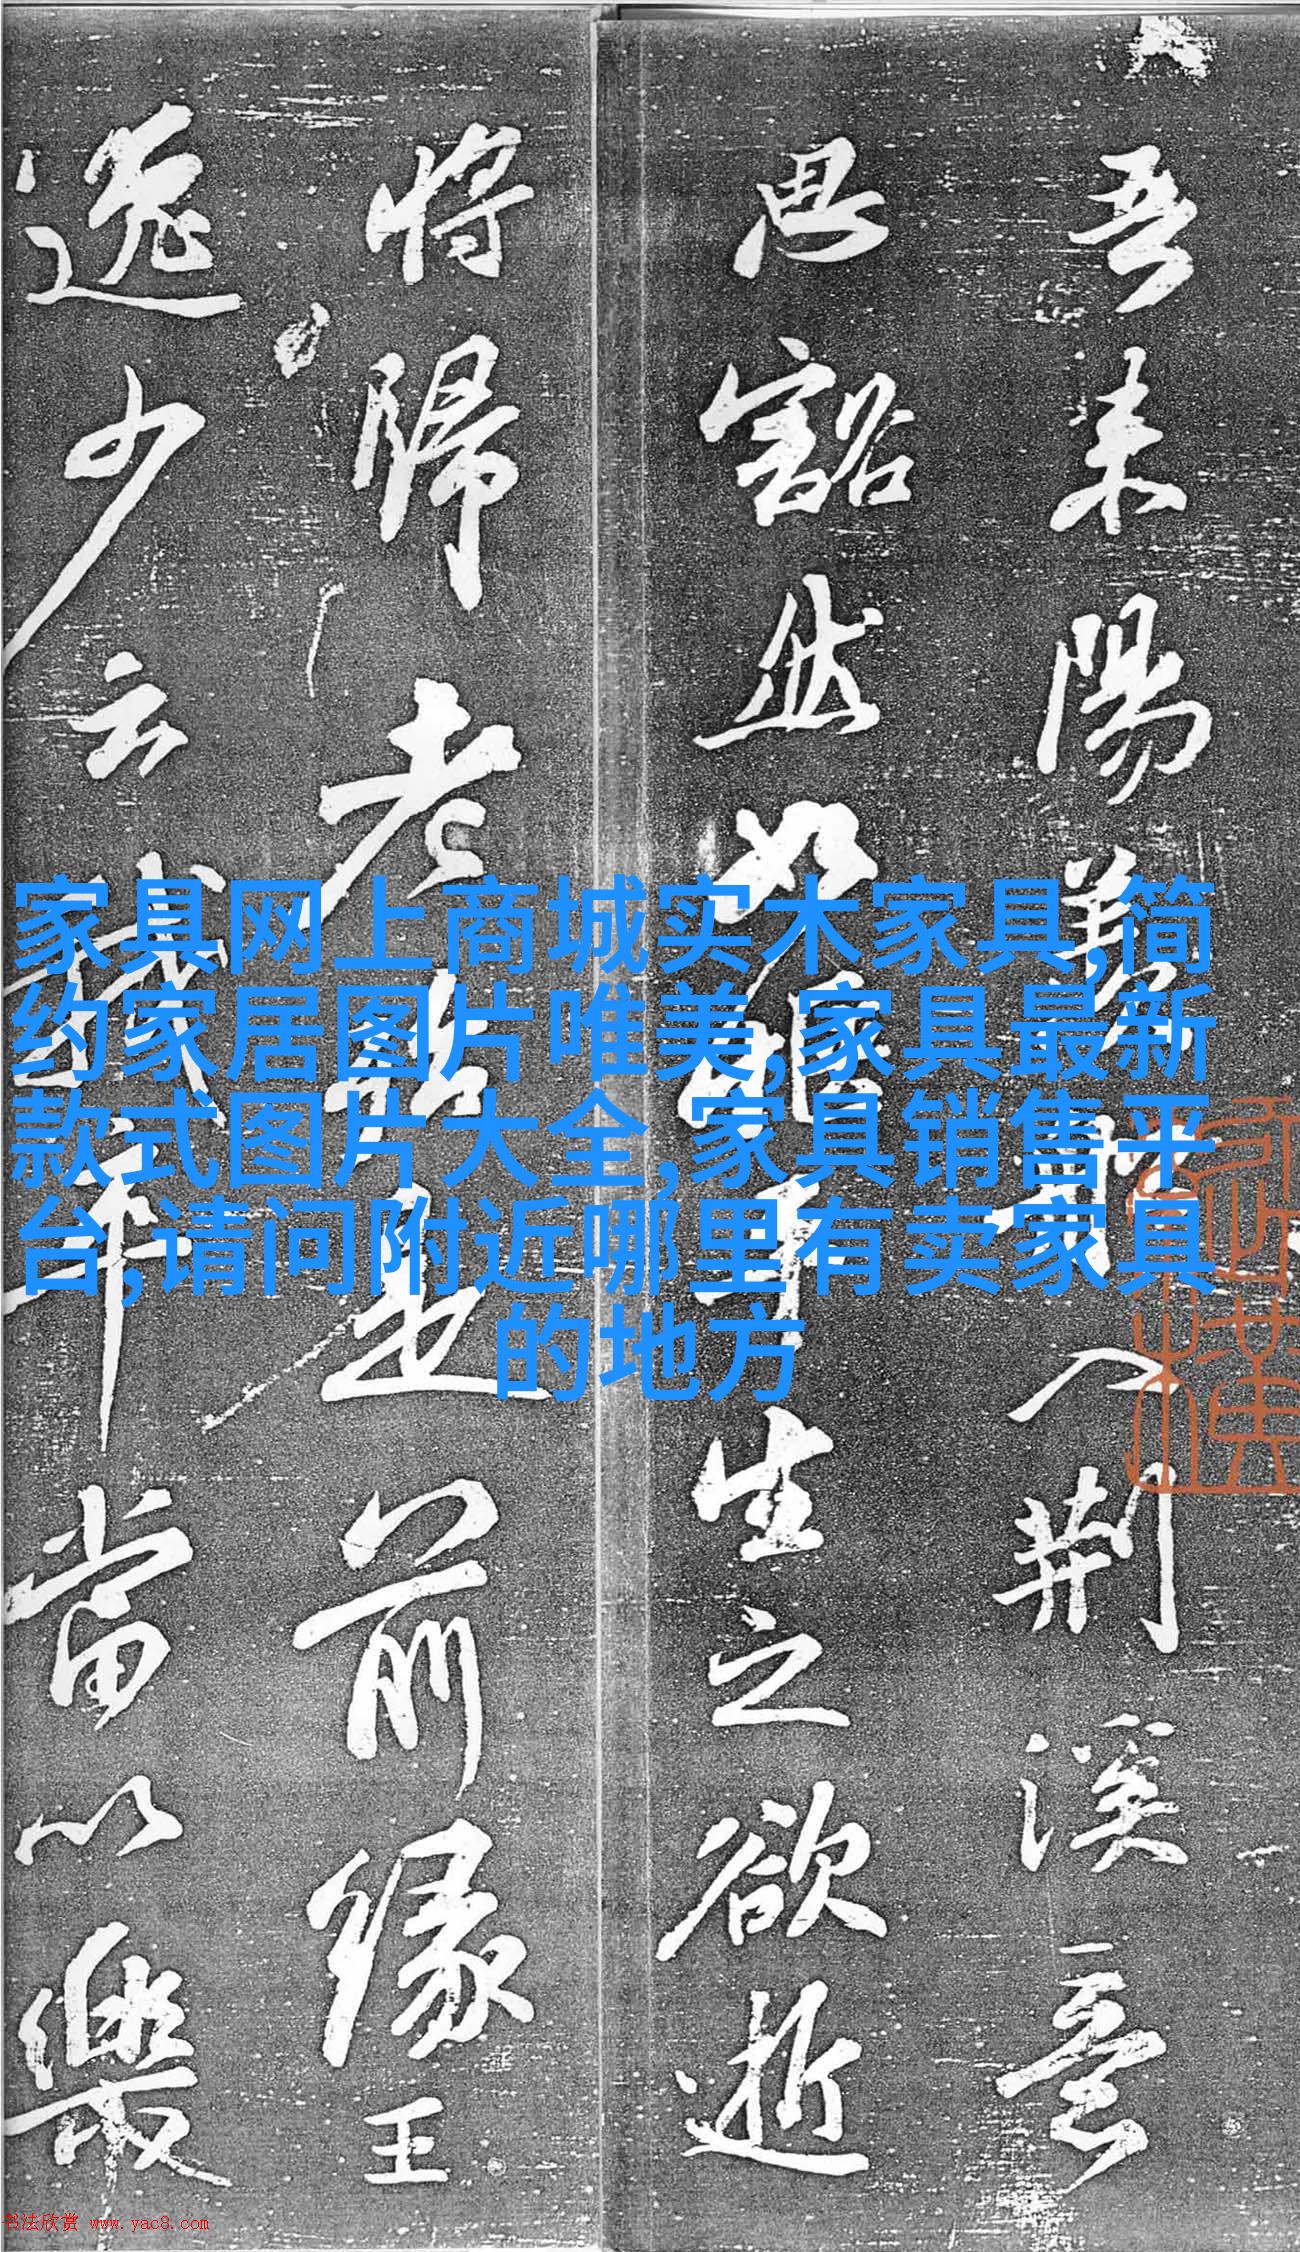 吾来陽羡船入荆溪意
思豁然如惬平生之欲逝
将歸老殆是前缘王
逸少云我卒當以樂
家具网上商城实木家具,简
约家居图片唯美,家具最新
款式图片大全,家具销售平
台,请问附近哪里有卖家具
的地方
书法欣赏 www.yac8.com